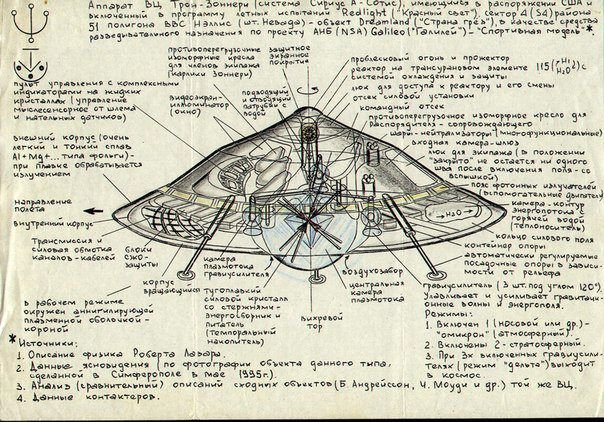 Аппарат ВЦ Трон-Зоннери (система Сириус А-Сотис), имеющийся в распоряжении США и
включенный в программу летных испытаний Redlight ("Красный свет") сектор 4 (S4) района
51 полигона ВВС Наллис (шт. Невада) - объект Dreamland ("Страна грёз"), в качестве средства
разведывательного назначения по проекту АНБ (NSA) Galileo ("Галилей") - "Спортивная модель" *
противоперегрузочные
изоморные кресла
для членов экипажа
(карлики Зоннери)
защитное
экранное
покрытие
проблесковый огонь и прожектор
реактор на трансурановом элементе 115
с системой охлаждения и защиты
люк для доступа к реактору и его смены
отсек силовой установки
командный отсек
противоперегрузочное изоморное кресло для
распорядителя - сопровождающего
шары-нейтрализаторы (многофункциональные)
входная камера-шлюз
люк для экипажа (в положении
"закрыто" не остается ни одного
шва после включения поля - со
вспышкой)
пояс фотонных излучателей
(вспомогательные двигатели)
камера-контур
энергопотока с
горячей водой
(теплоноситель)
кольцо силового поля
контейнер опоры
автоматически регулируемые
посадочные опоры в зависи-
мости от рельефа
пульт управления с комплексными
индикаторами на жидких
кристаллах (управление
мыслесенсорное от шлема
и нательных датчиков)
видеоэкран-
иллюминатор
(окно)
подводящий
и отводящий
патрубки с
водой
внешний корпус (очень
легкий и тонкий сплав
Al+Mg+... типа фольги) -
при плавке обрабатывается
излучением
направление
полёта
внутренний корпус
H₂O
Трансмиссия и
силовая обмотка
каналов-кабелей
блоки
СЖО-
защиты
камера
плазмотока
гравиусилителя
воздухозабор
центральная
камера
плазмотока
корпус
вращающийся
тугоплавкий
силовой кристалл
со стержнями-
энергосборник и
питатель
(темпоральный
накопитель)
вихревой
тор
гравиусилитель (3 шт. под углом 120°)
Улавливает и усиливает гравитаци-
онные волны и энергополя.
Режимы:
1. Включен 1 (носовой или др.) -
"омикрон" (атмосферный).
2. Включены 2 - стратосферный.
3. При 3х включенных гравиусили-
телях (режим "дельта") выходит
в космос.
в рабочем режиме
окружен аннигилирующей
плазменной оболочкой -
короной
* Источники:
1. Описание физика Роберта Лазара.
2. Данные ясновидения (по фотографии объекта данного типа,
сделанной в Симферополе в мае 1995г.).
3. Анализ (сравнительный) описаний сходных объектов (Б. Андрейссон, Ч. Моуди и др.) той же ВЦ.
4. Данные контактеров.